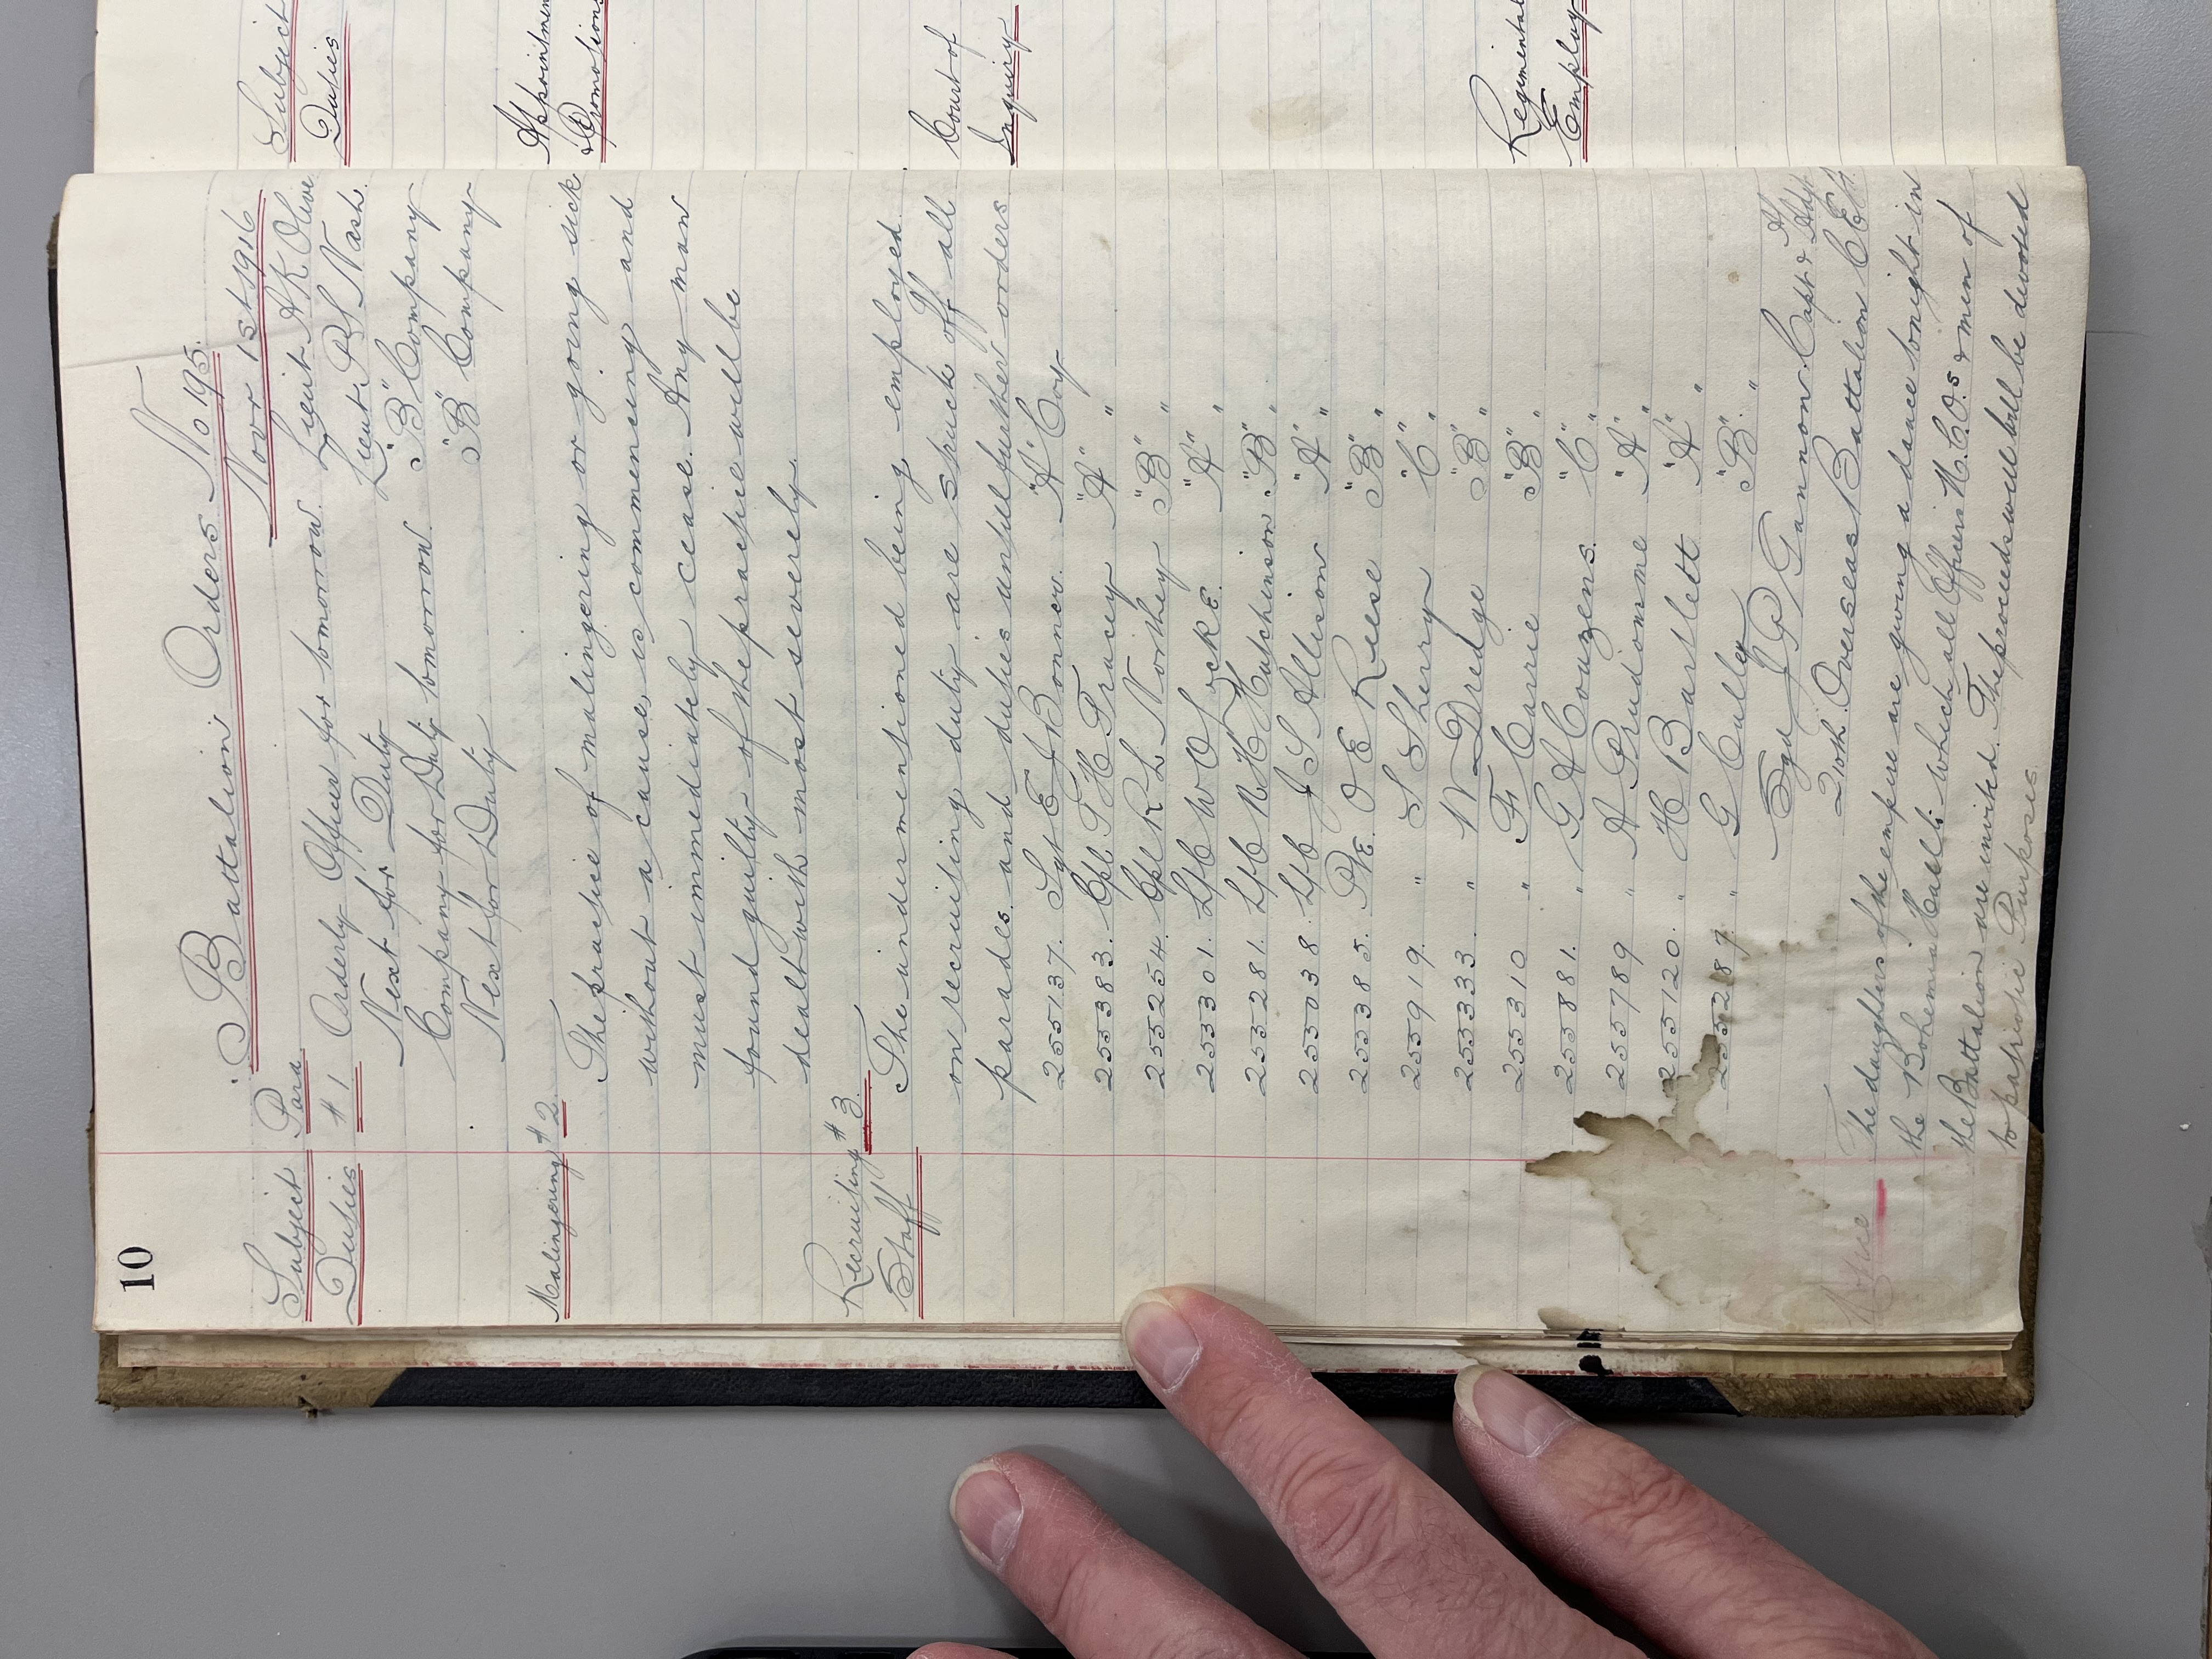 10
Battalion Orders No 195.
Nov 1st 1916
Subject Para
Duties #1 Orderly Officer for tomorrow. Lieut A K Olive
Next for Duty Lieut. P S Nash.
Company for Duty tomorrow. "B" Company
Next for Duty "B" Company
Malingering #2. The practice of malingering or going sick
without a cause, is commencing and
must immediately cease. Any man
found guilty of the practice will be
dealt with most severely.
Recruiting #3.
Staff
The undermentioned being employed
on recruiting duty are struck off all
parades and duties until further orders
255137. Sgt E J Bonner. "A" Coy
255383. Cpl T H Tracey "A" "
255254. Cpl R L Northey "B" "
255301. L/C W O Locke. "A" "
255281. L/C N H Hutchinson. "B" "
255038. L/C J S Allison "A" "
255385. Pte. O E Reese "B" "
255919. " S Sherry "C" "
255333. " W Dredge "B" "
255310 " F Carrie "B" "
255881. " G A Couzens. "C" "
255789 " A Prudomme "A" "
255120. " H Bartlett "A" "
255287. " G Culley "B". "
Sgd J P Gannon. Capt & A/Adjt
210th Overseas Battalion C E F.
The daughters of the empire are giving a dance tonight in
the Bohemian Hall. Which all Officers N.C.O.s & men of
the Battalion are invited. The proceeds will be devoted
to patriotic Purposes.
Subject
Duties
Appointmen
& Promotions
Court of
Inquiry
Regimental
Employ